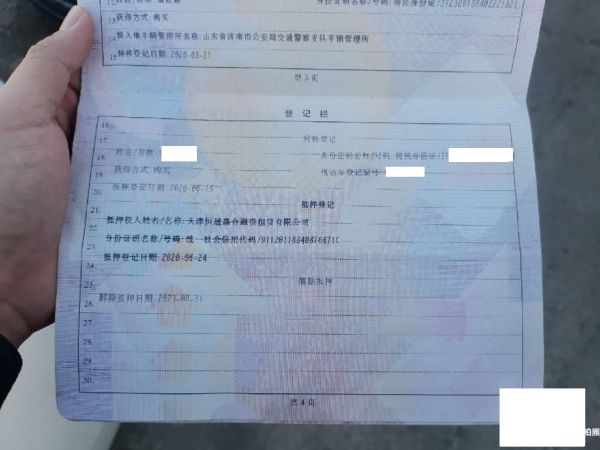 获得方式:购买
转入地车辆管理所名称:山东省济南市公安局交通警察支队车辆管理所
转移登记日期:2020-03-31
第3页
登记栏
转移登记
姓名/名称:
身份证明名称/号码:居民身份证/37
获得方式:购买
机动车登记编号:
转移登记日期:2020-06-15
抵押登记
抵押权人姓名/名称:天津恒通嘉合融资租赁有限公司
身份证明名称/号码:统一社会信用代码
抵押登记日期:2020-06-24
解除抵押
解除抵押日期:
第4页
拍照